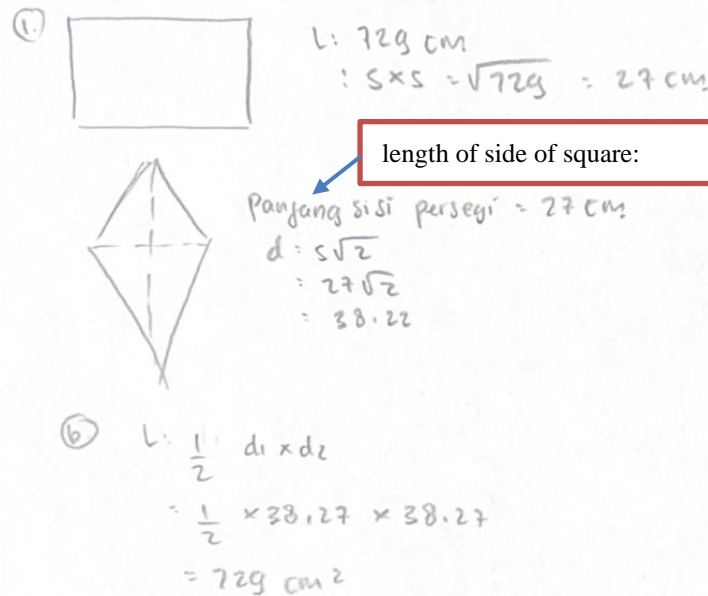 1.
L: 729 cm
: s×s = √729 = 27 cm
length of side of square:
Panjang sisi persegi = 27 cm
d = s√2
= 27√2
= 38.22
b L: 1/2 d1 × d2
= 1/2 × 38.27 × 38.27
= 729 cm²